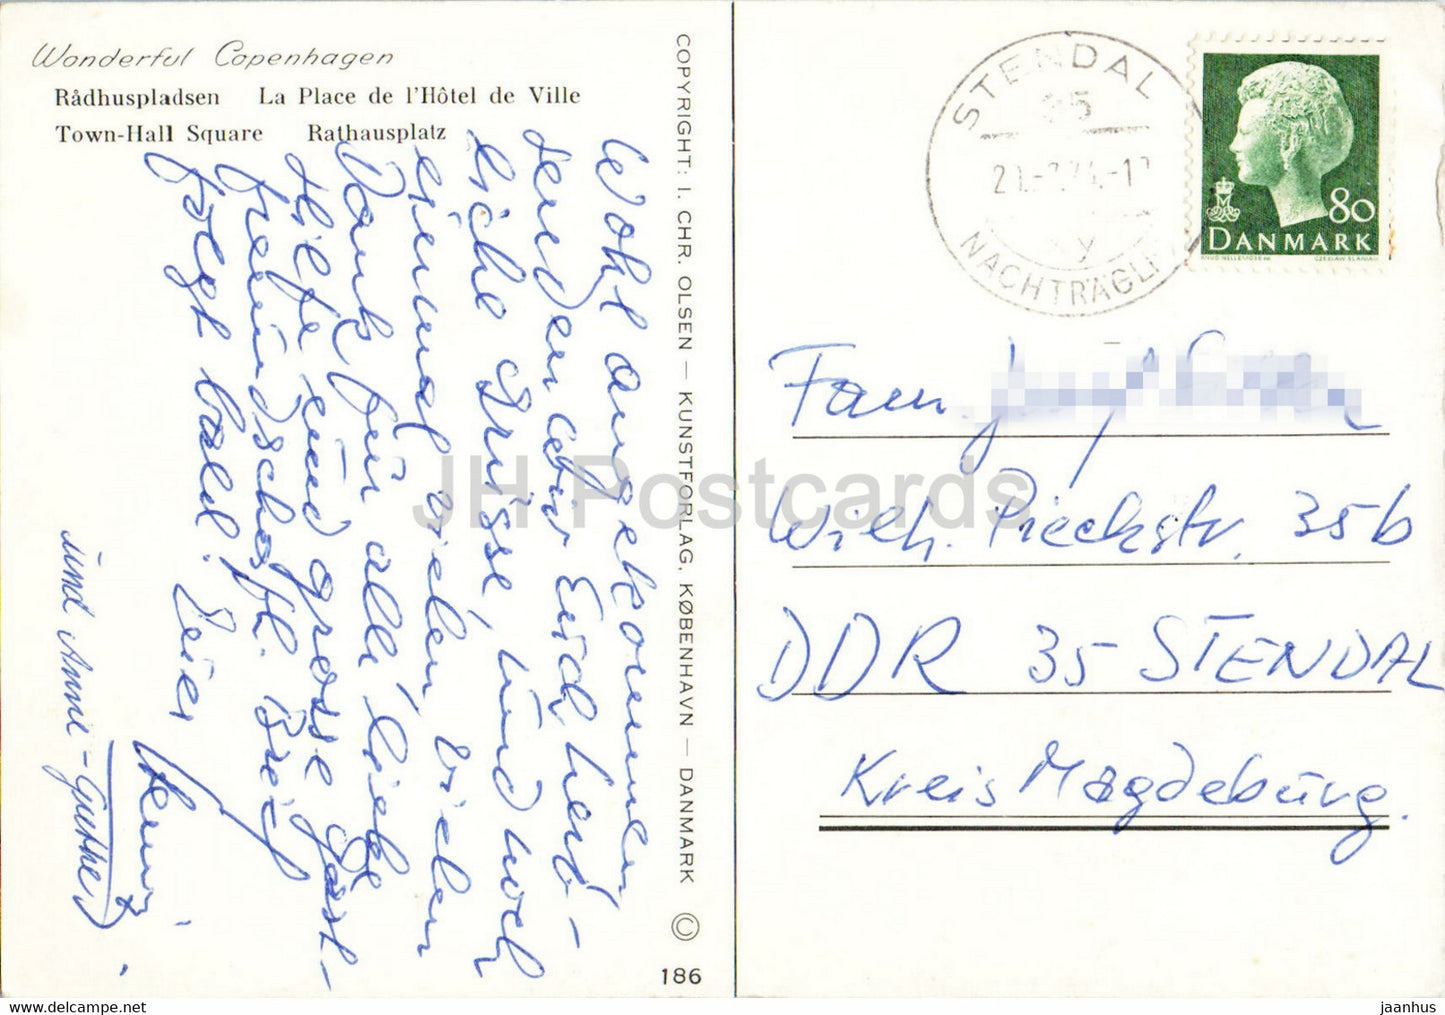 Wonderful Copenhagen
Rådhuspladsen La Place de l'Hôtel de Ville
Town-Hall Square Rathausplatz
Wohl angekommen
senden wir Euch herz-
liche Grüsse, und noch
einmal vielen, vielen
Dank für all' liebe
Hilfe und grosse Gast-
freundschaft. Brief
folgt bald! Euer
Heinz
und Anne-Guthe
COPYRIGHT: I. CHR. OLSEN — KUNSTFORLAG, KØBENHAVN — DANMARK ©
186
STENDAL
NACHTRÄGLI
y
80
DANMARK
Fam.
Wilh. Pieckstr. 35b
DDR 35 STENDAL
Kreis Magdeburg.
JH Postcards
www.delcampe.net
jaanhus